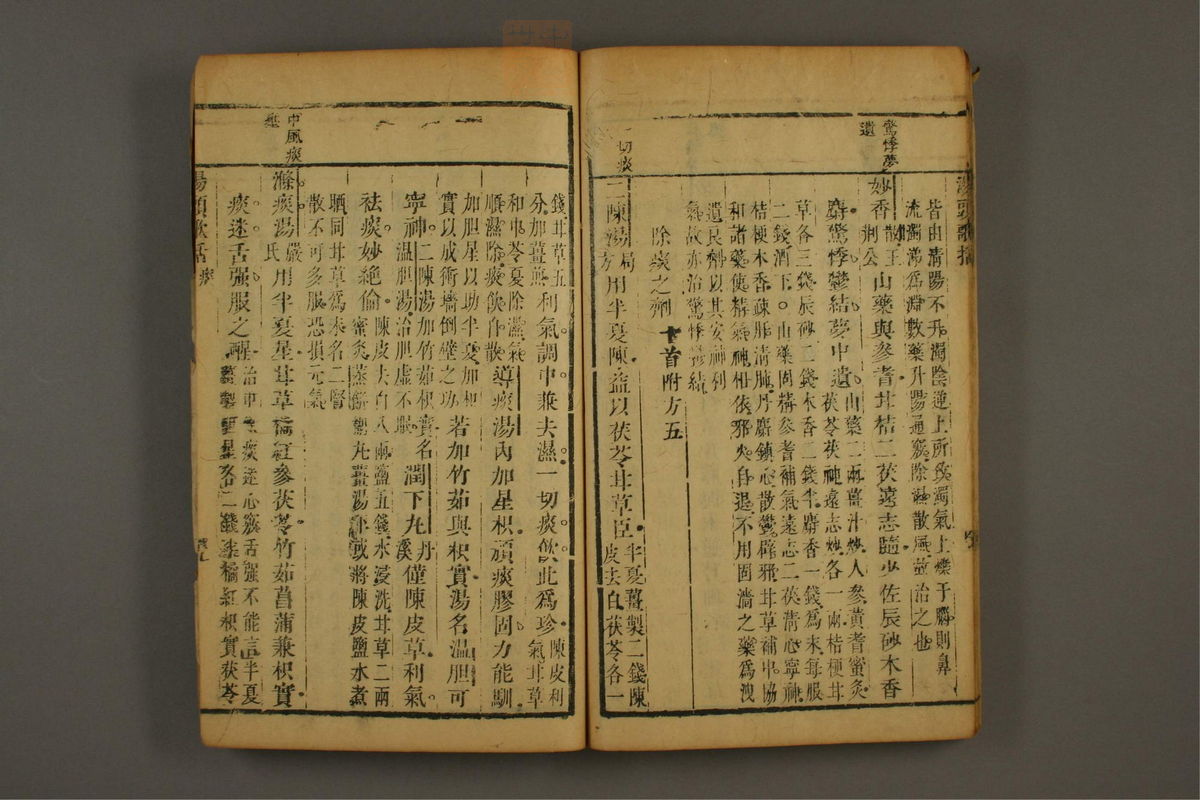 湯頭歌括
皆由清陽不升濁陰逆上所致濁氣上爍于腦則鼻
流濁涕為淵數藥升陽通竅除濕散風故治之也
驚悸夢遺
妙香散 王荊公 山藥與參耆甘桔二茯遠志臨少佐辰砂木香
麝驚悸鬱結夢中遺 山藥二兩薑汁炒人參黃耆蜜炙
茯苓茯神遠志炒各一兩桔梗甘
草各三錢辰砂二錢木香二錢半麝香一錢為末每服
二錢酒下○山藥固精參耆補氣遠志二茯清心寧神
桔梗木香疎肝清肺丹麝鎮心散鬱辟邪甘草補中協
和諸藥使精氣神相依邪火自退不用固濇之藥為洩
遺良劑以其安神利
氣故亦治驚悸鬱結
除痰之劑 十首附方五
一切痰
二陳湯 局方 用半夏陳益以茯苓甘草臣 半夏薑製二錢陳
皮去白茯苓各一
錢甘草五
分加薑煎 利氣調中兼去濕一切痰飲此為珍 陳皮利
氣甘草
和中苓夏除濕氣
順濕除痰飲自散 導痰湯內加星枳頑痰膠固力能馴
加胆星以助半夏加枳
實以成衝墻倒壁之功 若加竹茹與枳實湯名温胆可
寧神 二陳湯加竹茹枳實名
温胆湯治胆虛不眠 潤下丸 丹溪 僅陳皮草利氣
祛痰妙絕倫 陳皮去白八兩鹽五錢水浸洗甘草二兩
蜜炙蒸餅糊丸薑湯下或將陳皮鹽水煮
晒同甘草為末名二賢
散不可多服恐損元氣
中風痰
滌痰湯 嚴氏 用半夏星甘草橘紅參茯苓竹茹菖蒲兼枳實
痰迷舌强服之醒 治中風痰迷心竅舌强不能言半夏
薑製胆星各二錢半橘紅枳實茯苓
湯頭歌括 痰